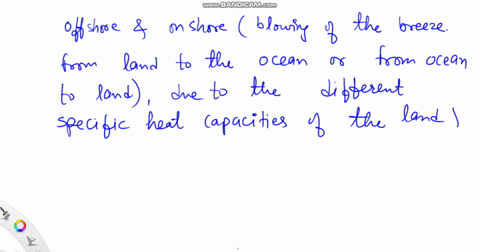 WWW.BANDICAM.COM
offshore & onshore (blowing of the breeze
from land to the ocean or from ocean
to land), due to the different
specific heat capacities of the land \